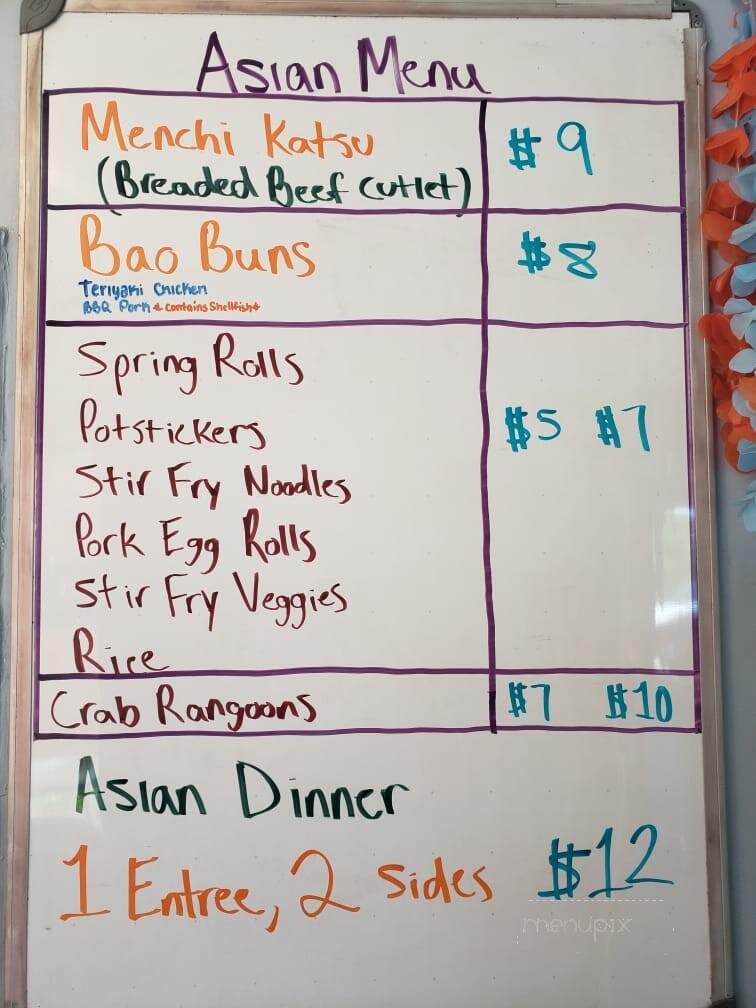 Asian Menu
Menchi Katsu
(Breaded Beef Cutlet)
$9
Bao Buns
$8
Teriyaki Chicken
BBQ Pork * contains Shellfish *
Spring Rolls
Potstickers
$5 $7
Stir Fry Noodles
Pork Egg Rolls
Stir Fry Veggies
Rice
Crab Rangoons $7 $10
Asian Dinner
1 Entree, 2 sides $12
menupix